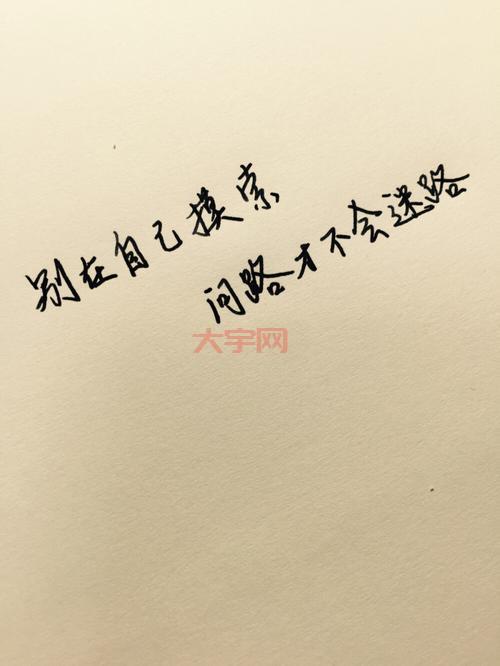 别在自己摸索
问路才不会迷路
大宇网